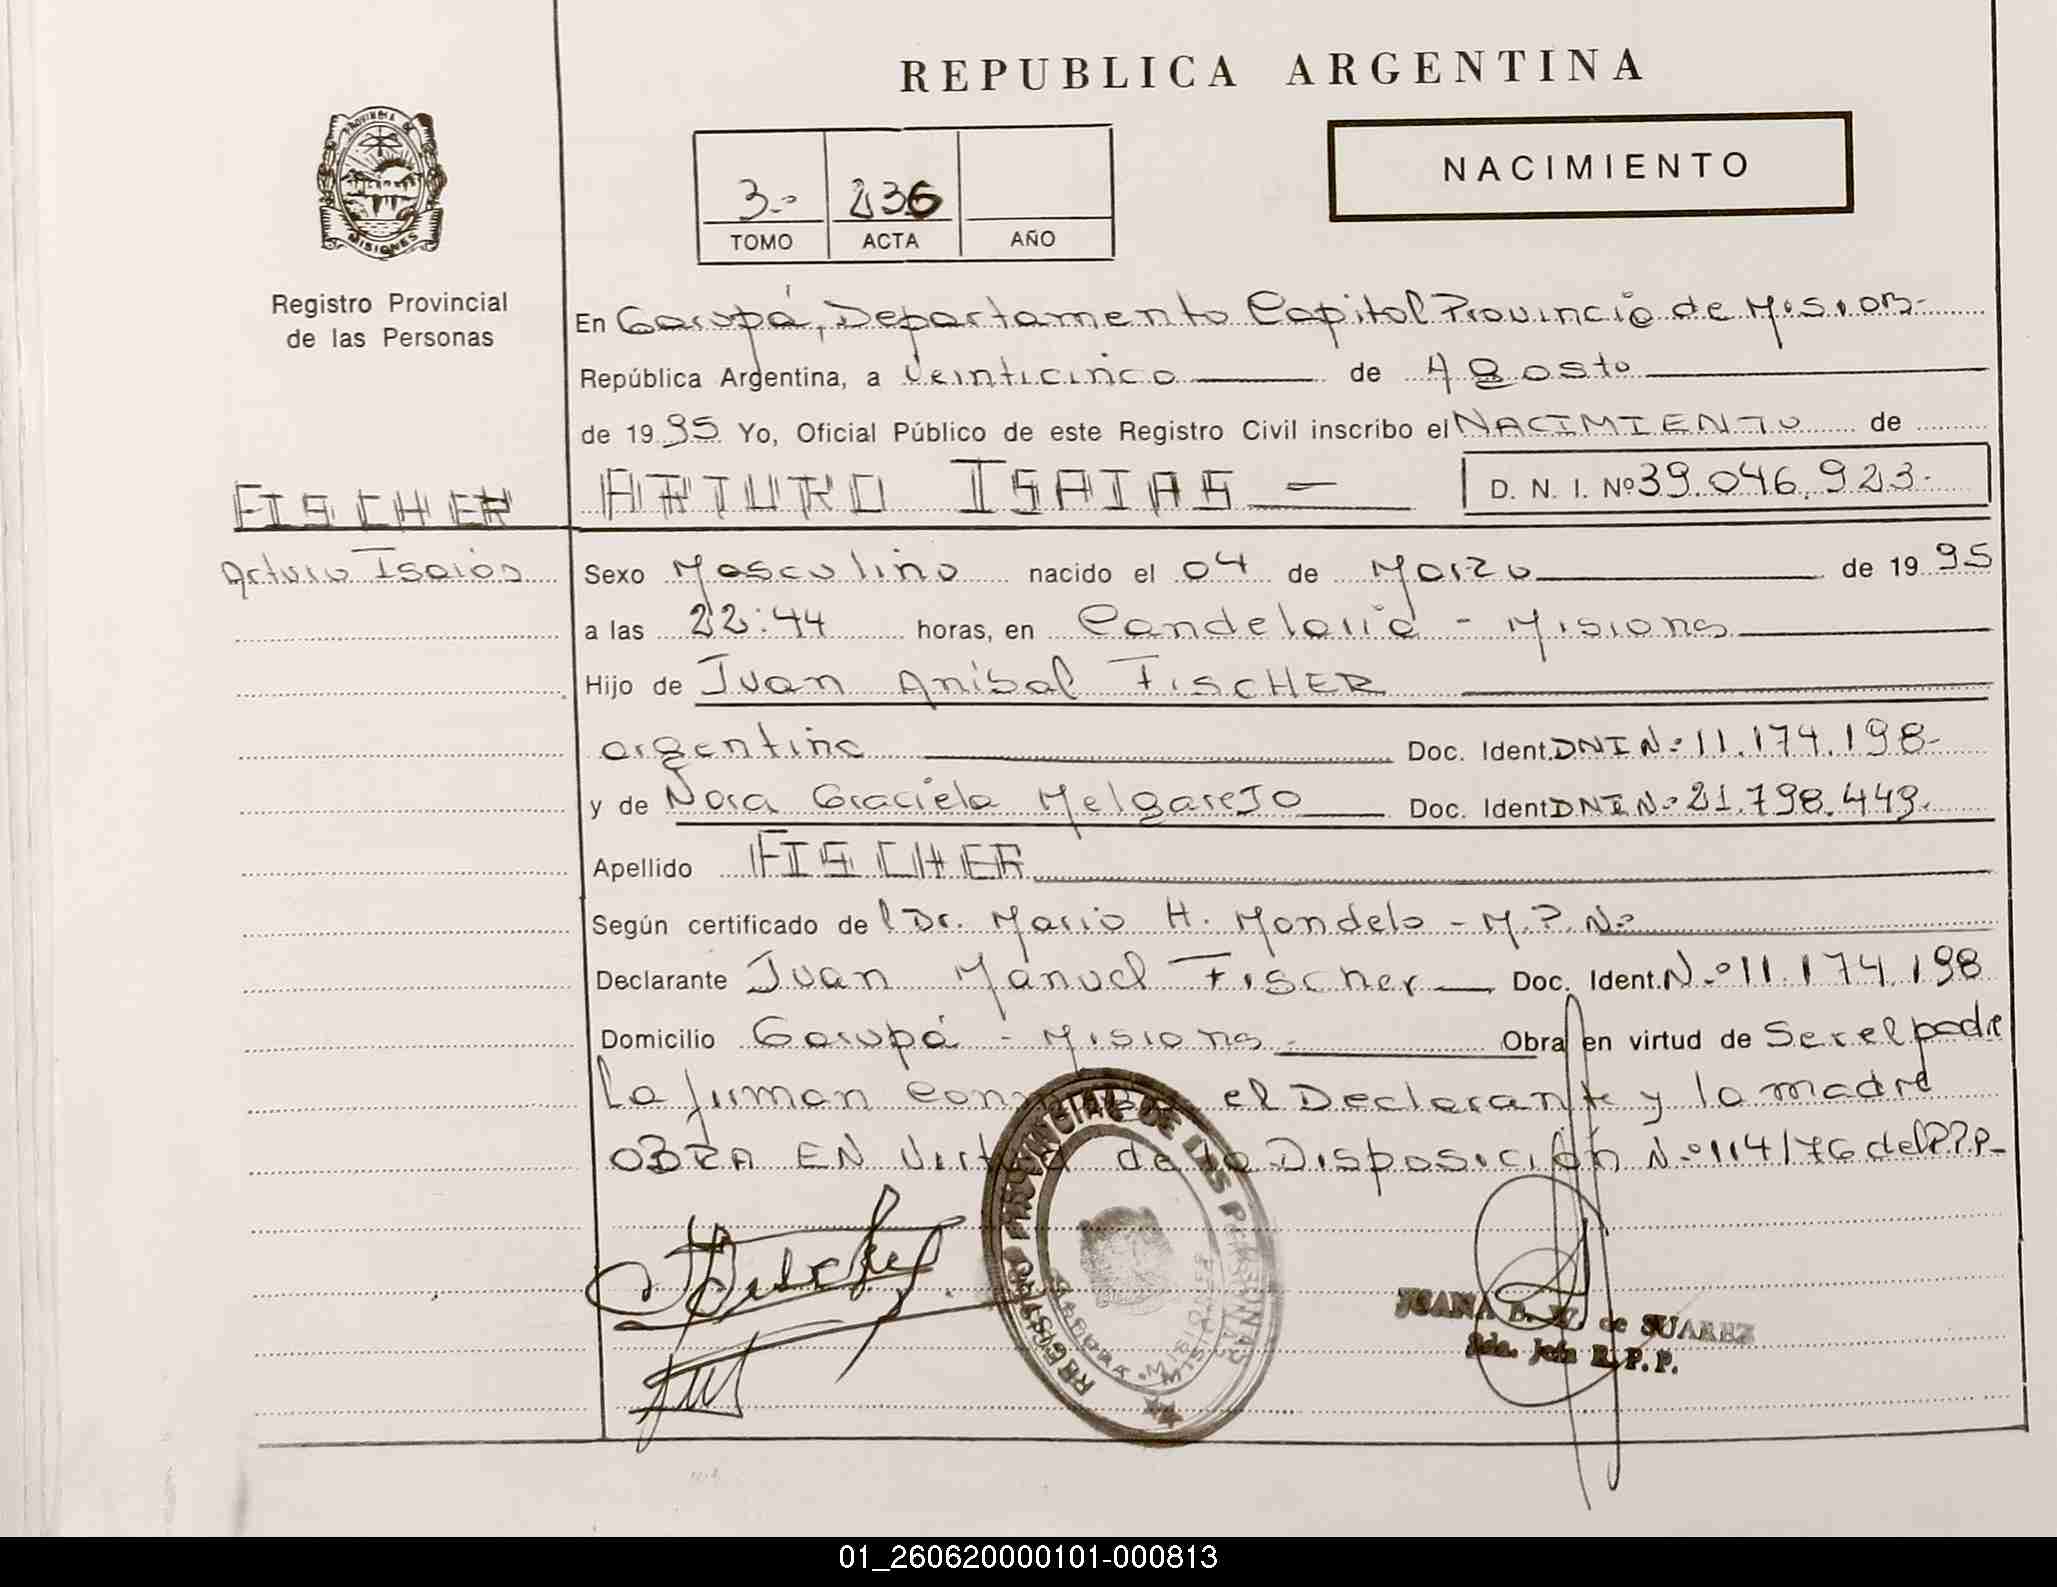 REPUBLICA ARGENTINA
NACIMIENTO
3.- 236
TOMO ACTA AÑO
PROVINCIA DE
MISIONES
Registro Provincial
de las Personas
En Garupá, Departamento Capital Provincia de Misiones-
República Argentina, a Veinticinco de Agosto
de 1995 Yo, Oficial Público de este Registro Civil inscribo el NACIMIENTO de
FISCHER ARTURO ISAIAS - D. N. I. Nº 39.046.923-
Arturo Isaias Sexo Masculino nacido el 04 de Marzo de 1995
a las 22:44 horas, en Candelaria - Misiones
Hijo de Juan Anibal FISCHER
argentino Doc. Ident. DNI Nº 11.174.198-
y de Nora Graciela Melgarejo Doc. Ident DNI Nº 21.798.449.
Apellido FISCHER
Según certificado del Dr. Mario H. Mondelo - M.P. Nº
Declarante Juan Manuel Fischer Doc. Ident. Nº 11.174.198
Domicilio Garupá - Misiones - Obra en virtud de Ser el padre
La firman el Declarante y la madre
OBRA EN Virtud de la Disposición Nº 114/76 del R.P.P-
REGISTRO PROVINCIAL DE LAS PERSONAS
JUANA B. W. de SUAREZ
Sda. Jefa R. P. P.
01_260620000101-000813